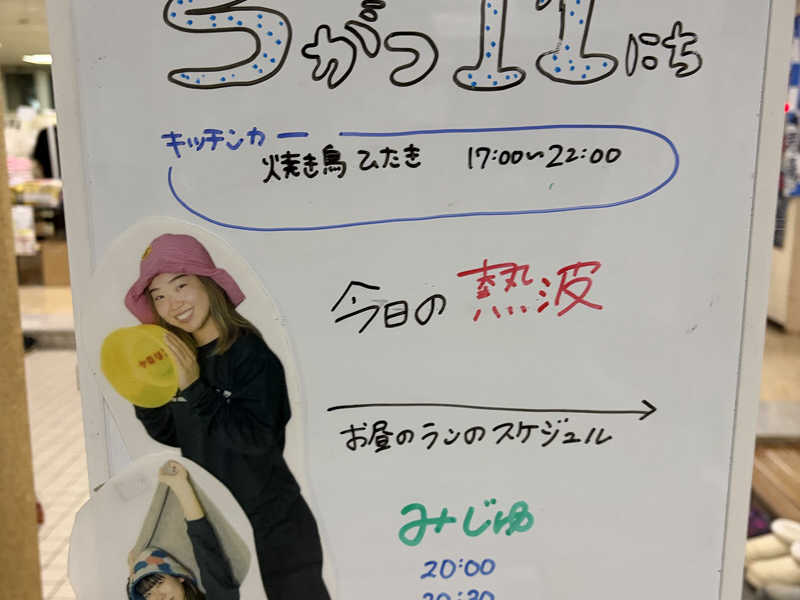 5がつ11にち
キッチンカー
焼き鳥 ひたき 17:00~22:00
今日の 熱波
お昼のランのスケジュール
みじゅ
20:00
20:30